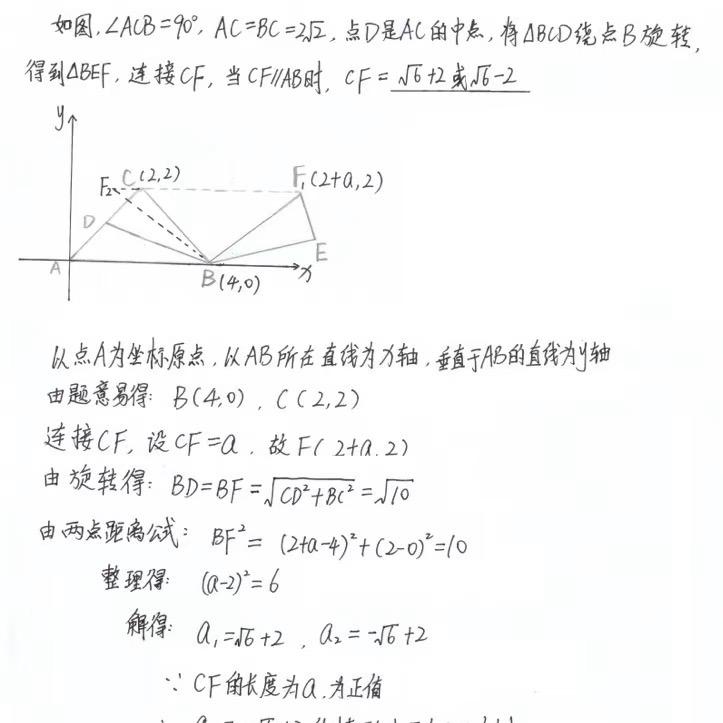 如图,∠ACB=90°,AC=BC=2√2,点D是AC的中点,将△BCD绕点B旋转,
得到△BEF,连接CF,当CF//AB时,CF=√6+2或√6-2
y
C(2,2)
F₂
F₁(2+a,2)
D
E
A
B(4,0)
x
以点A为坐标原点,以AB所在直线为x轴,垂直于AB的直线为y轴
由题意易得:B(4,0),C(2,2)
连接CF,设CF=a,故F(2+a.2)
由旋转得:BD=BF=√(CD²+BC²)=√10
由两点距离公式:BF²=(2+a-4)²+(2-0)²=10
整理得:(a-2)²=6
解得:a₁=√6+2,a₂=-√6+2
∵CF的长度为a,为正值